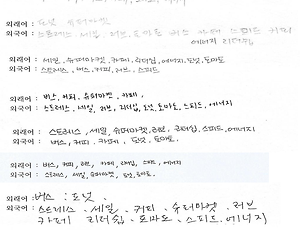 외래어 : 도넛 슈퍼마켓
외국어 : 스트레스 세일 러브 토마토 버스 카페 스피드 커피
에너지 리더쉽
외래어 : 세일, 슈퍼마켓, 카페, 리더쉽, 에너지, 도넛, 토마토
외국어 : 스트레스, 버스, 커피, 러브, 스피드
외래어 : 버스, 커피, 슈퍼마켓, 카페,
외국어 : 스트레스, 세일, 러브, 리더쉽, 도넛, 토마토, 스피드, 에너지
외래어 : 스트레스, 세일, 슈퍼마켓, 러브, 리더쉽, 스피드, 에너지
외국어 : 버스, 커피, 카페, 도넛, 토마토.
외래어 : 버스, 커피, 카페, 리더쉽, 스피드, 에너지
외국어 : 스트레스, 세일, 슈퍼마켓, 도넛, 토마토.
외래어 : 버스, 도넛,
외국어 : 스트레스, 세일, 커피, 슈퍼마켓, 러브
카페, 리더쉽, 토마토, 스피드, 에너지